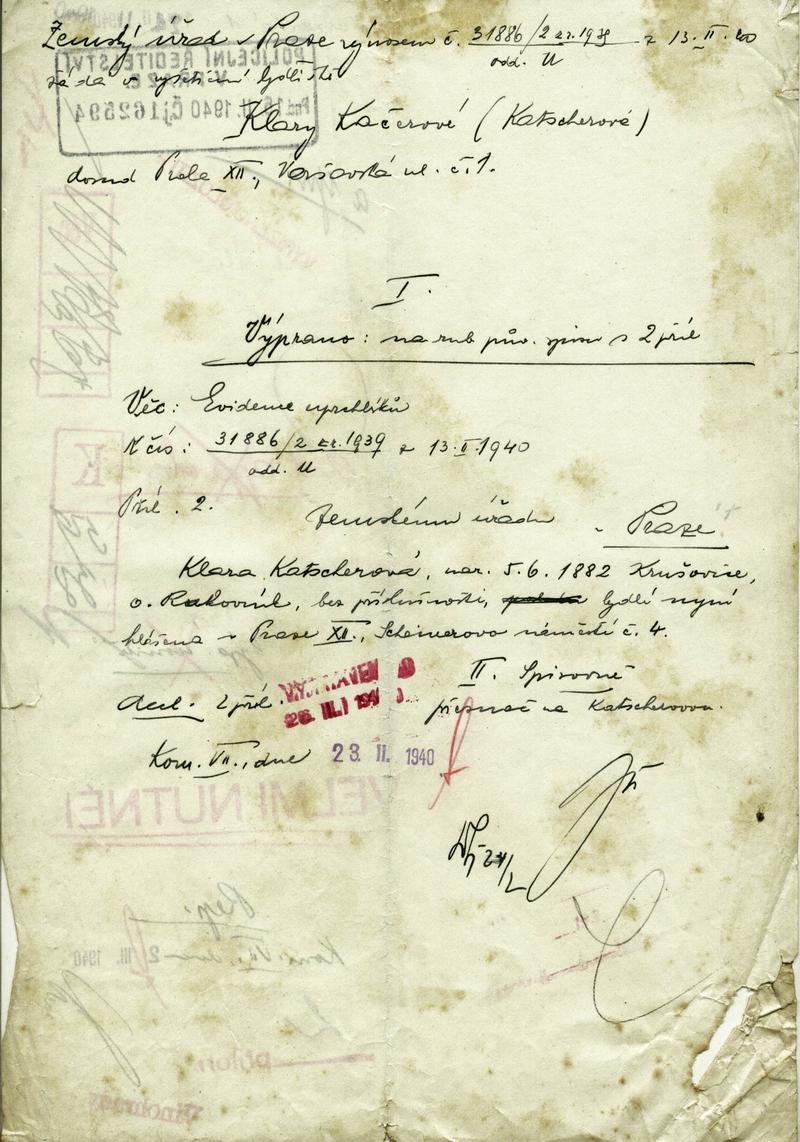 Zemský úřad v Praze výnosem č. 31886/2 ex.1939 z 13. II. 40
odd. U
žádá o vyšetření bydliště
POLICEJNÍ ŘEDITELSTVÍ
V PRAZE
1940 Čj 162594
Klary Kačerové (Katscherová)
dosud Praha XII., Varšavská ul. č. 1.
I.
Vypraveno: na rub pův. spisu s 2 příl
Věc: Evidence uprchlíků
K čís: 31886/2 ex.1939 z 13.II.1940
odd. U
Příl. 2.
Zemskému úřadu v Praze
Klara Katscherová, nar. 5.6.1882 Krušovice,
o. Rakovník, bez příslušnosti, bydlí nyní
hlášena v Praze XII., Scheinerovo náměstí č. 4.
II.
2 příl.
přeznač na Katscherovou.
Kom. VII., dne 23. II. 1940
VELMI NUTNÉ!
Kom. VII. dne 2. III. 1940
příloh
Vinohrady